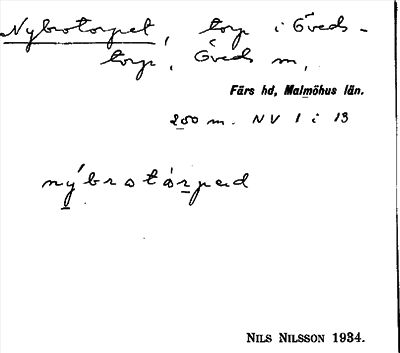 Nybrotorpet, torp i Öveds-
torp, Öveds sn,
Färs hd, Malmöhus län.
200 m. NV 1 i 13
nýbrotàrpad
NILS NILSSON 1934.